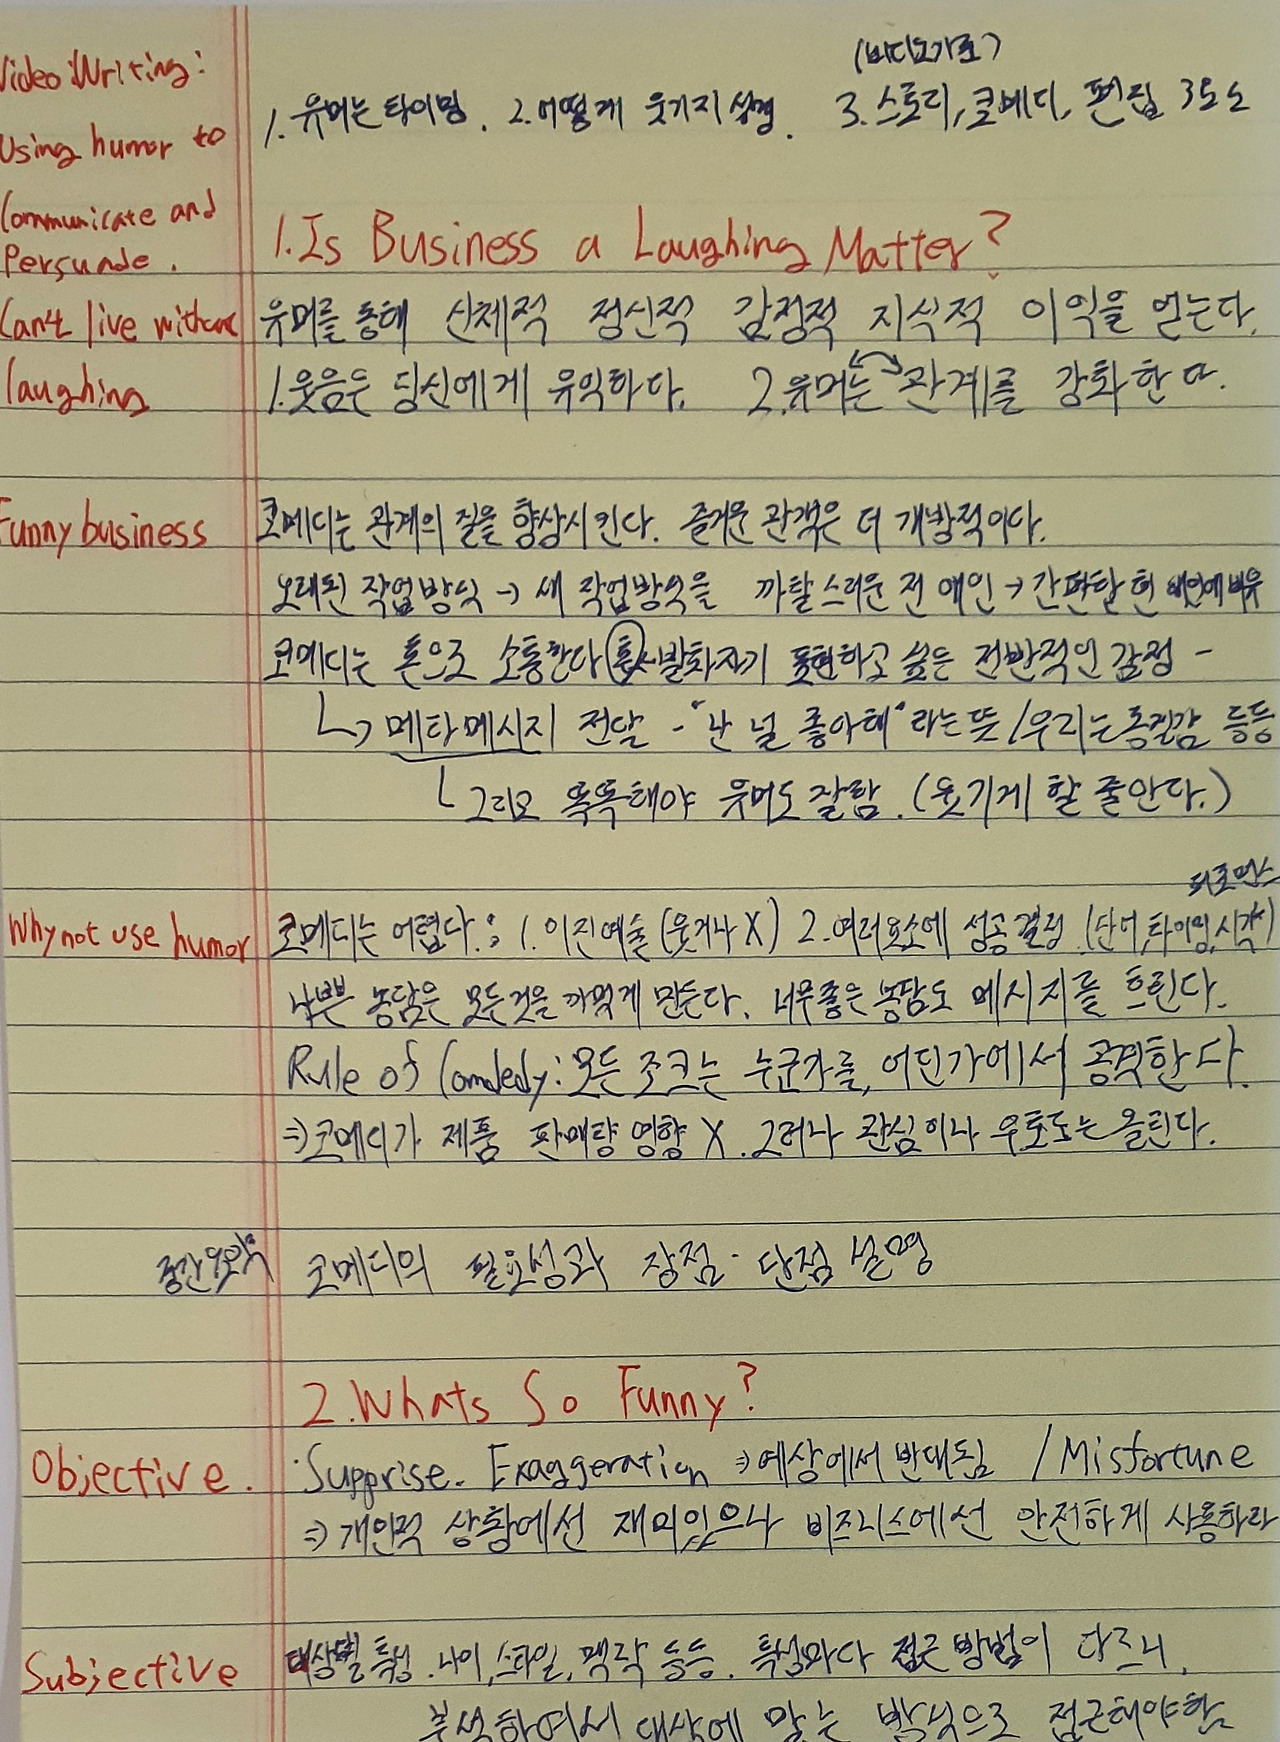 Video Writing:
Using humor to
Communicate and
Persuade.
(비디오가로)
1. 유머는 타이밍. 2. 어떻게 웃기지 설명. 3. 스토리, 코메디, 편집 3요소
1. Is Business a Laughing Matter?
Can't live without
laughing
유머를 통해 신체적 정신적 감정적 지식적 이익을 얻는다.
1. 웃음은 당신에게 유익하다. 2. 유머는 관계를 강화한다.
Funny business
코메디는 관계의 질을 향상시킨다. 즐거운 관객은 더 개방적이다.
오래된 작업방식 → 새 작업방식을 까탈스러운 전 애인 → 간편한 현 애인에 비유
코메디는 톤으로 소통한다 톤 발화자가 표현하고 싶은 전반적인 감정 -
↳ 메타메시지 전달 - "난 널 좋아해" 라는 뜻 / 우리는 동질감 등등
└ 그리고 똑똑해야 유머도 잘함. (웃기게 할 줄 안다.)
퍼포먼스
Why not use humor
코메디는 어렵다.; 1. 이진예술 (웃거나 X) 2. 여러요소에 성공 결정. (단어, 타이밍, 시각)
나쁜 농담은 모든것을 까먹게 만든다. 너무좋은 농담도 메시지를 흐린다.
Rule of Comdedy: 모든 조크는 누군가를, 어딘가에서 공격한다.
⇒ 코메디가 제품 판매량 영향 X. 그러나 관심이나 우호도는 올린다.
중간요약 코메디의 필요성과 장점·단점 설명
2. Whats So Funny?
Objective. Supprise. Exaggeration ⇒ 예상에서 반대됨 / Misfortune
⇒ 개인적 상황에선 재미있으나 비즈니스에선 안전하게 사용하라
Subjective 대상별 특성. 나이, 스타일, 맥락 등등. 특성마다 접근 방법이 다르니,
분석하여서 대상에 맞는 방식으로 접근해야함